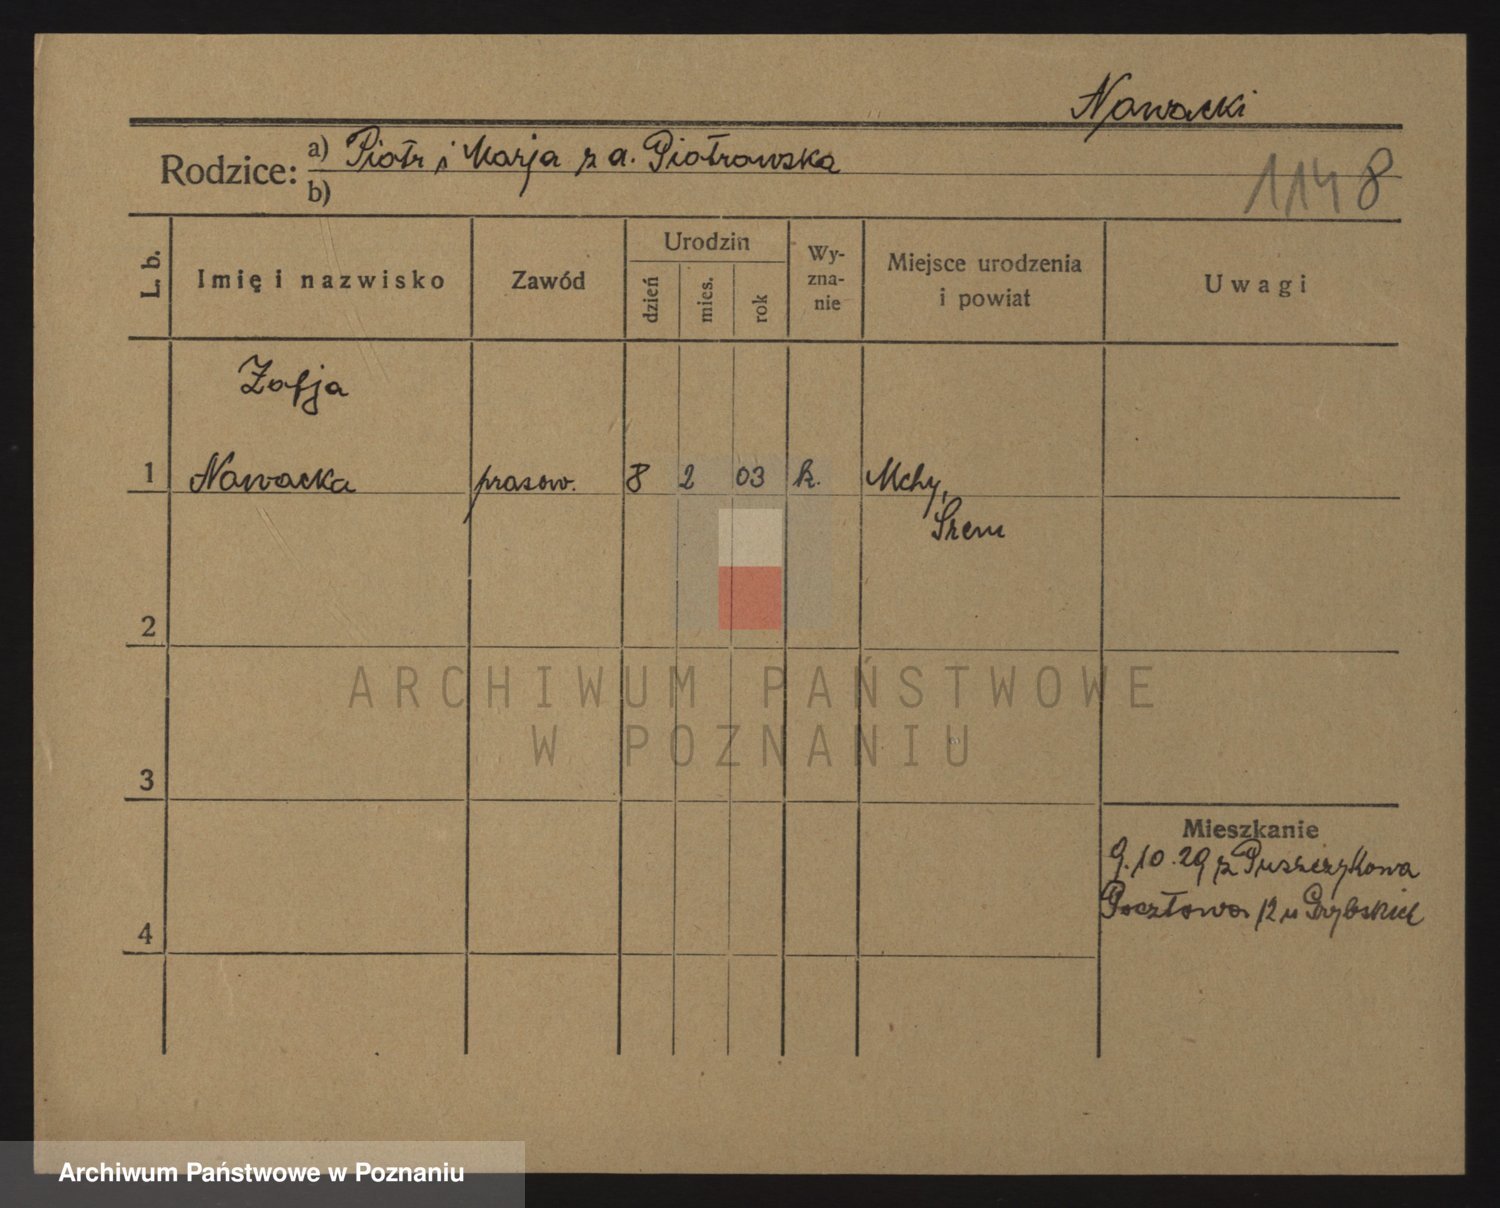 Nowacki
Rodzice: a) Piotr i Marja z d. Piotrowska
b)
1148
L. b.
Imię i nazwisko
Zawód
Urodzin
dzień
mies.
rok
Wy-
zna-
nie
Miejsce urodzenia
i powiat
Uwagi
Zofja
1 Nowacka prasow. 8 2 03 k. Mchy,
Śrem
2
ARCHIWUM PAŃSTWOWE
W POZNANIU
3
Mieszkanie
9.10.29 z Puszczykowa
Pocztowa 12 u
4
Archiwum Państwowe w Poznaniu